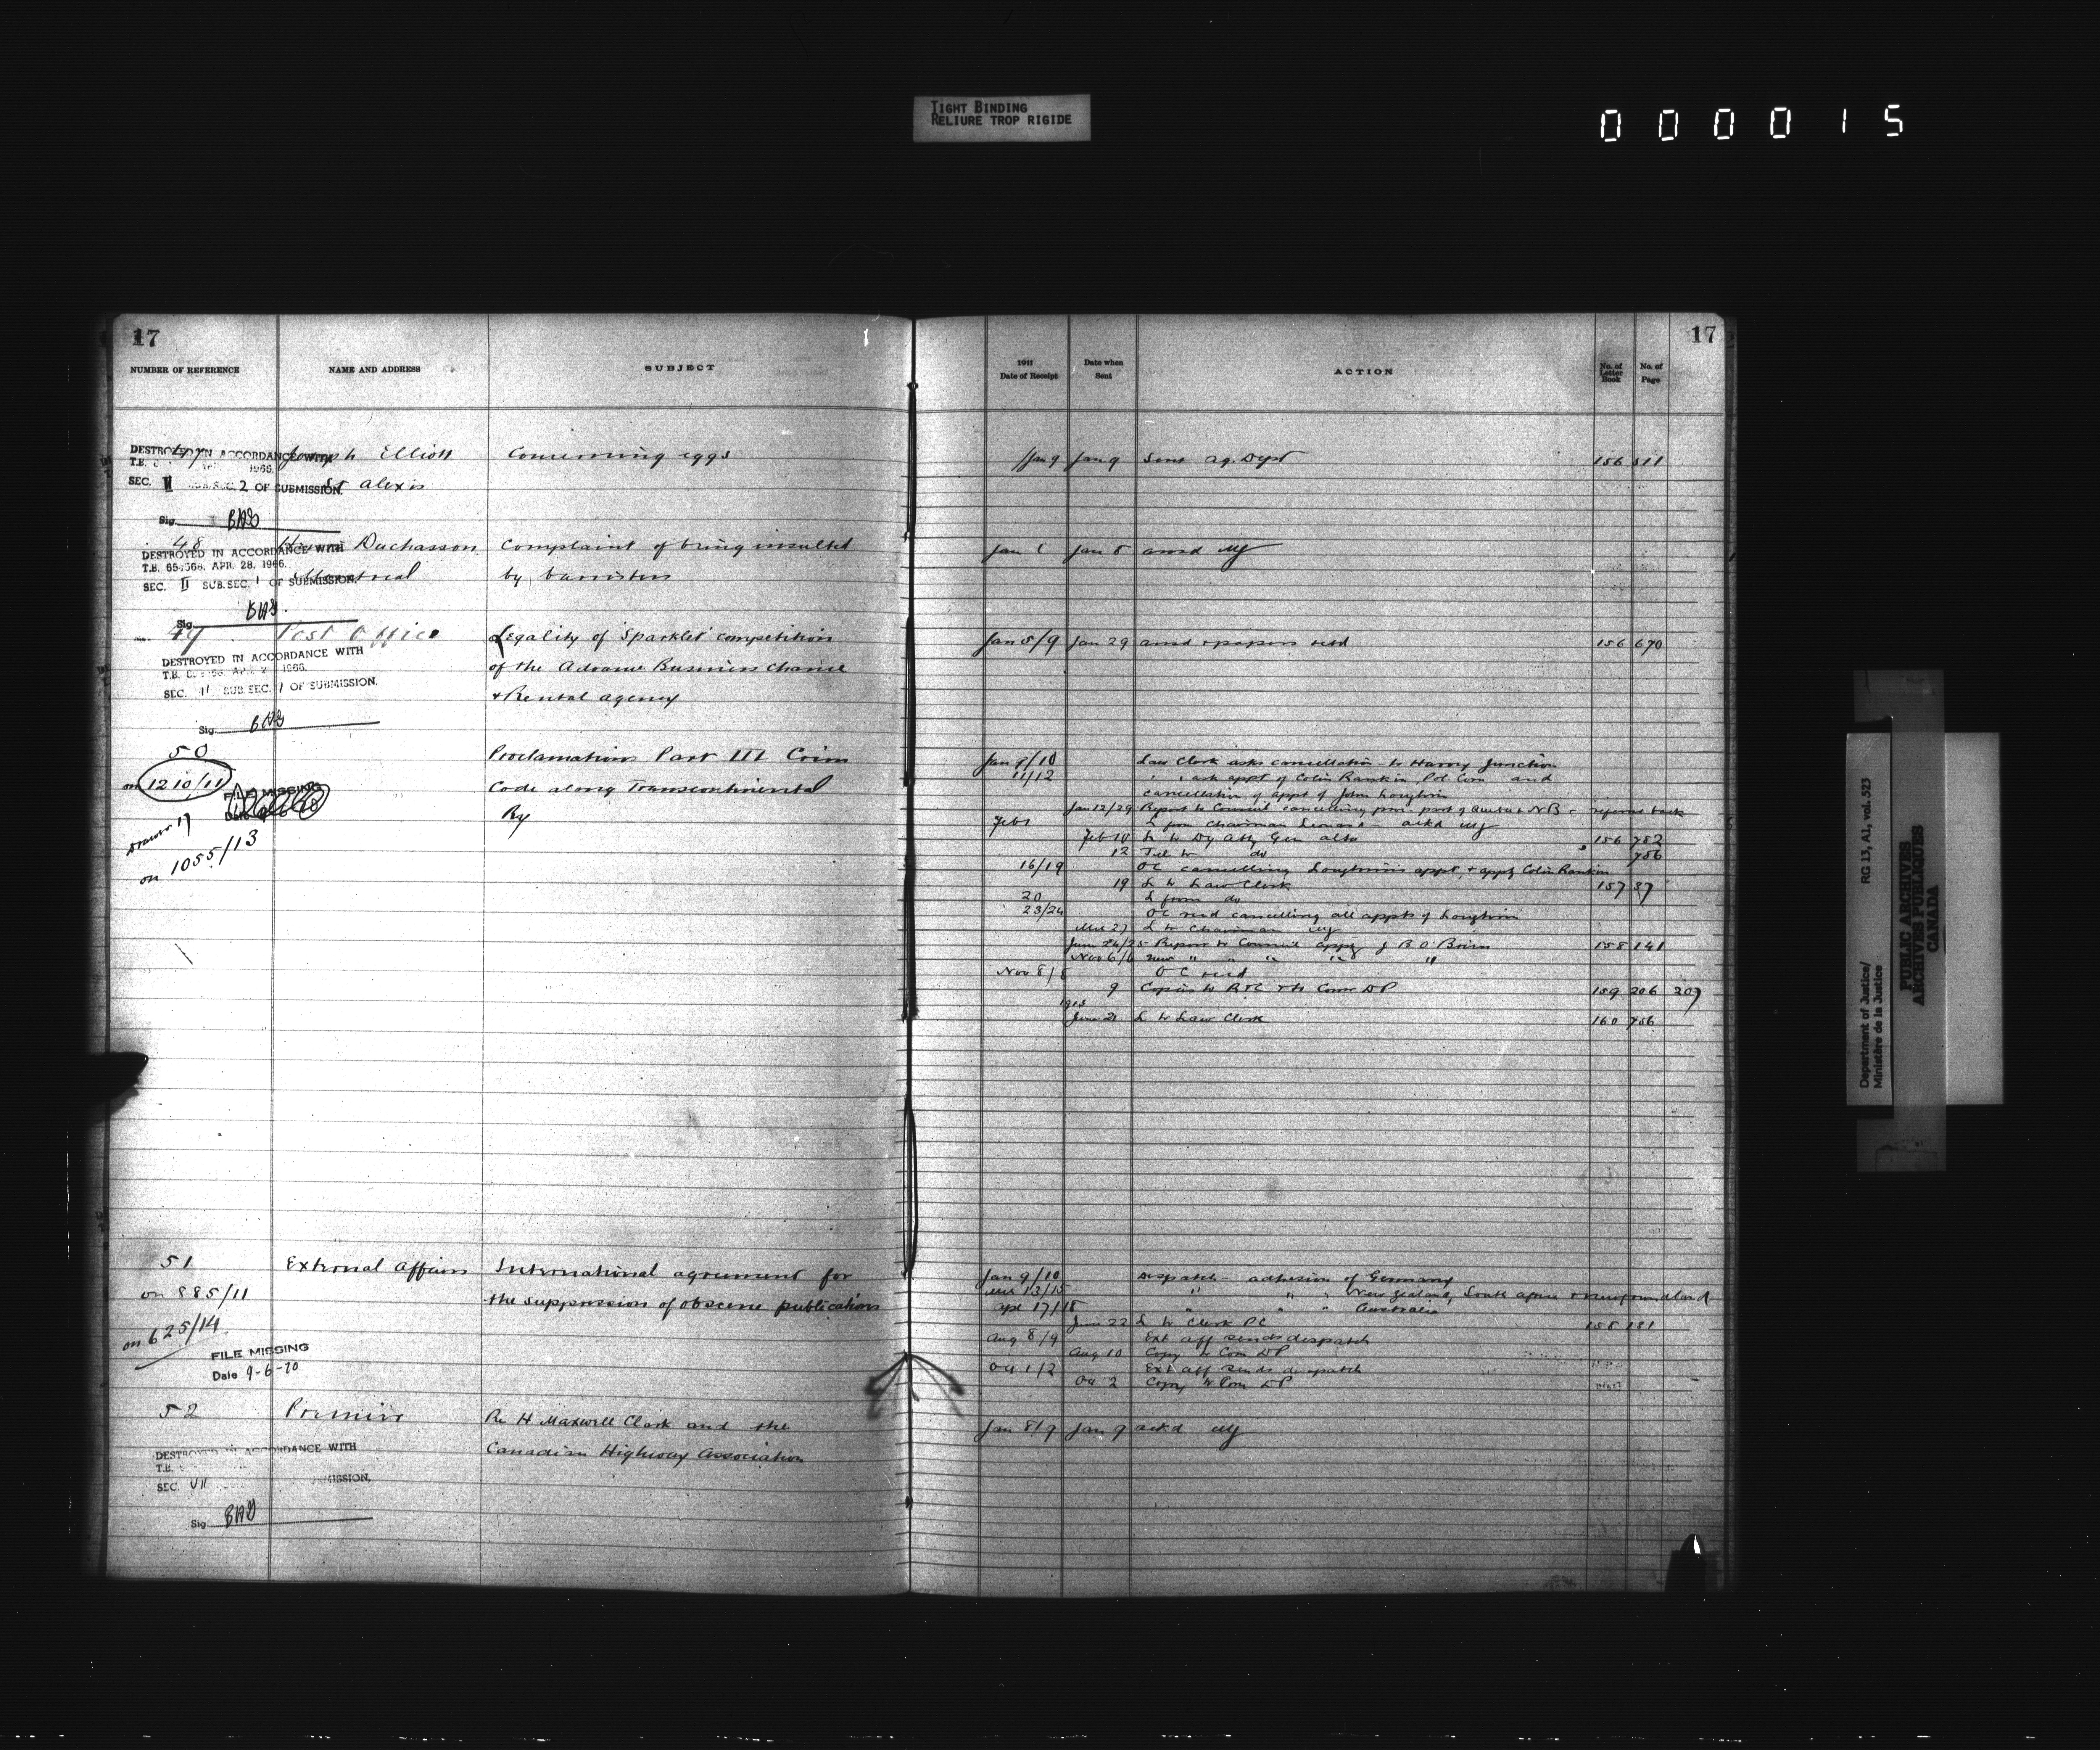 TIGHT BINDING
RELIURE TROP RIGIDE
000015
17
NUMBER OF REFERENCE NAME AND ADDRESS SUBJECT
47 Joseph Elliott Concerning eggs
DESTROYED IN ACCORDANCE WITH
T.B. 1966.
St Alexis
SEC. II SUB.SEC. 2 OF SUBMISSION.
Sig. BAS
48 Duchasson Complaint of being insulted
DESTROYED IN ACCORDANCE WITH
T.B. APR. 28, 1966.
Montreal by barristers
SEC. II SUB.SEC. I OF SUBMISSION.
Sig. BAS
49 Post Office Legality of 'Sparklet' competition
DESTROYED IN ACCORDANCE WITH
of the Advance Business Chance
T.B. 1966.
SEC. II SUB.SEC. I OF SUBMISSION.
& Rental agency
Sig. BAS
50 Proclamation Part III Crim
on 1210/11 Code along Transcontinental
FILE MISSING
Ry
on 1055/13
51 External Affairs International agreement for
on 885/11 the suppression of obscene publications
on 625/14
FILE MISSING
Date 9-6-70
52 Premier Re H Maxwell Clark and the
Canadian Highway Association
DESTROYED IN ACCORDANCE WITH
T.B.
SEC. VII SUBMISSION.
Sig. BAS
17
1911 Date of Receipt Date when Sent ACTION No. of Letter Book No. of Page
Jan 9 Jan 9 Sent Ag. Dept 156 511
Jan Jan 8 ansd
Jan 5/9 Jan 29 ansd & papers retd 156 670
Jan 9/10 Law Clerk asks cancellation to Harvey Junction
11/12 " " ask appt of Colin Rankin Pol. Com and
cancellation of appt of John Loughrin
Jan 12/29 Report to Council cancelling proc. part of Quebec & NB - referred back
Feb 1 L from Chairman Leonard - ackd
Feb L to Dy Atty Gen alta 156 752
12 Tel to do 756
16/19 OC cancelling Loughrin's appt, & apptg Colin Rankin
19 L to Law Clerk 157 37
20 L from do
23/24 OC recd cancelling all appts of Loughrin
L to Chairman
June 24/25 Report to Council apptg J B O'Brien 158 141
Nov 6/6 new " " " " "
Nov 8/8 OC recd
9 Copies to & to Com DP 159 206 207
1913
June 21 L to Law Clerk 160 756
Jan 9/10 Despatch - adhesion of Germany
13/15 " " " New Zealand, South Africa & Newfoundland
Apl 17/18 " " " Australia
June 22 L to Clerk PC 158 131
Aug 8/9 Ext aff sends despatch
Aug 10 Copy to Com DP
Oct 1/2 Ext aff sends despatch
Oct 2 Copy to Com DP
Jan 8/9 Jan 9 ackd
Department of Justice/
Ministère de la Justice
RG 13, A1, vol. 523
PUBLIC ARCHIVES
ARCHIVES PUBLIQUES
CANADA